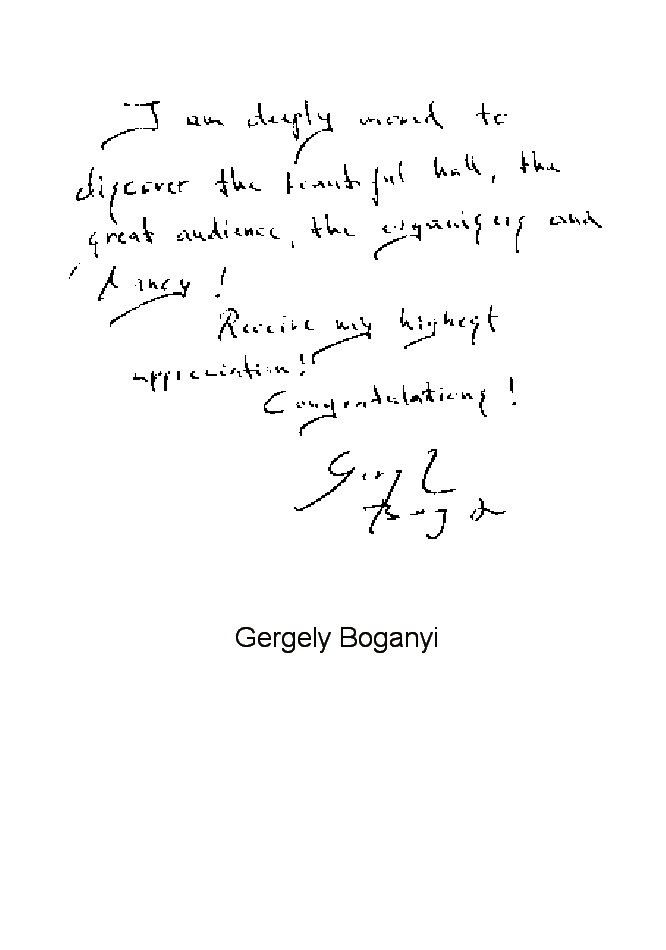 I am deeply moved to
discover the beautiful hall, the
great audience, the organisers and
Nancy!
Receive my highest
appreciation!
Congratulations!
Gergely Boganyi